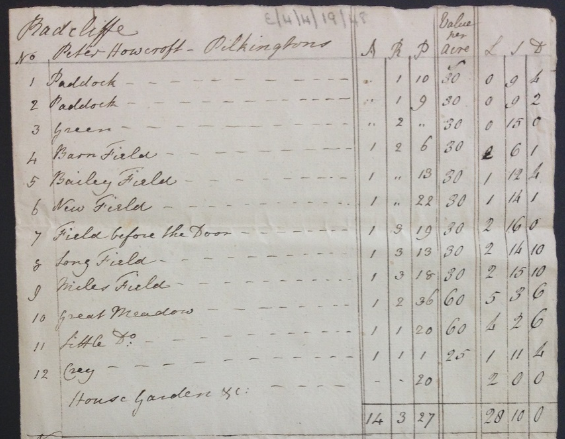 E/4/4/19/48
Radcliffe
No Peter Howcroft - Pilkingtons A R P Value per Acre L S D
1 Paddock " 1 10 30 0 9 4
2 Paddock " 1 9 30 0 9 2
3 Green " 2 " 30 0 15 0
4 Barn Field 1 2 6 30 2 6 1
5 Bailey Field 1 " 13 30 1 12 4
6 New Field 1 " 22 30 1 14 1
7 Field before the Door 1 3 19 30 2 16 0
8 Long Field 1 3 13 30 2 14 10
9 Miles Field 1 3 18 30 2 15 10
10 Great Meadow 1 2 36 60 5 3 6
11 Little Do. 1 1 20 60 4 2 6
12 1 1 1 25 1 11 4
House Garden &c: - - 20 2 0 0
14 3 27 28 10 0